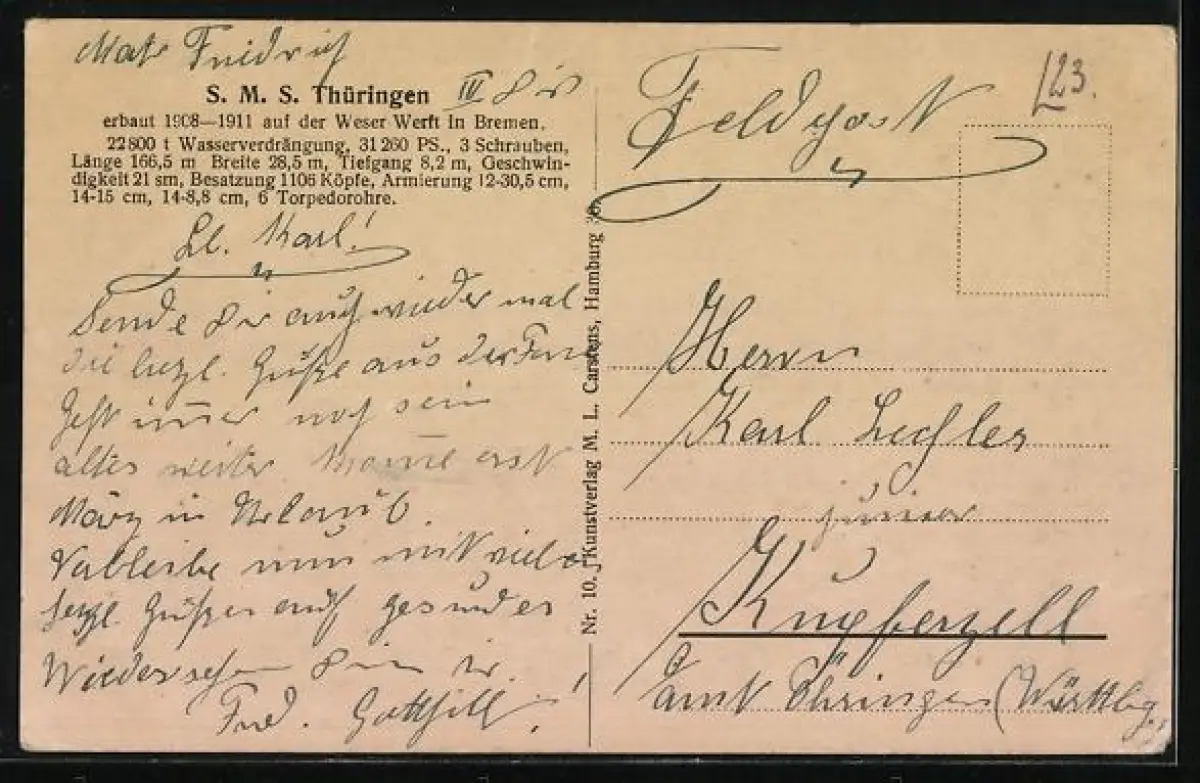 Matr Friedrich
III Div
S. M. S. Thüringen
erbaut 1908—1911 auf der Weser Werft in Bremen.
22800 t Wasserverdrängung, 31260 PS., 3 Schrauben,
Länge 166,5 m Breite 28,5 m, Tiefgang 8,2 m, Geschwin-
digkeit 21 sm, Besatzung 1106 Köpfe, Armierung 12-30,5 cm,
14-15 cm, 14-8,8 cm, 6 Torpedorohre.
Lb. Karl!
Sende Dir auch wieder mal
die herzl. Grüße aus der
Geht immer noch sein
altes weiter. Komme erst
März in Urlaub.
Verbleibe nun mit viel
herzl. Grüßen auf gesundes
Wiedersehen Dein
Frd. Gotthilf.
Nr. 10. Kunstverlag M. L. Carstens, Hamburg 36
Feldpost
123.
Herrn
Karl Lechler
junior
Kupferzell
Amt Öhringen (Württbg.)